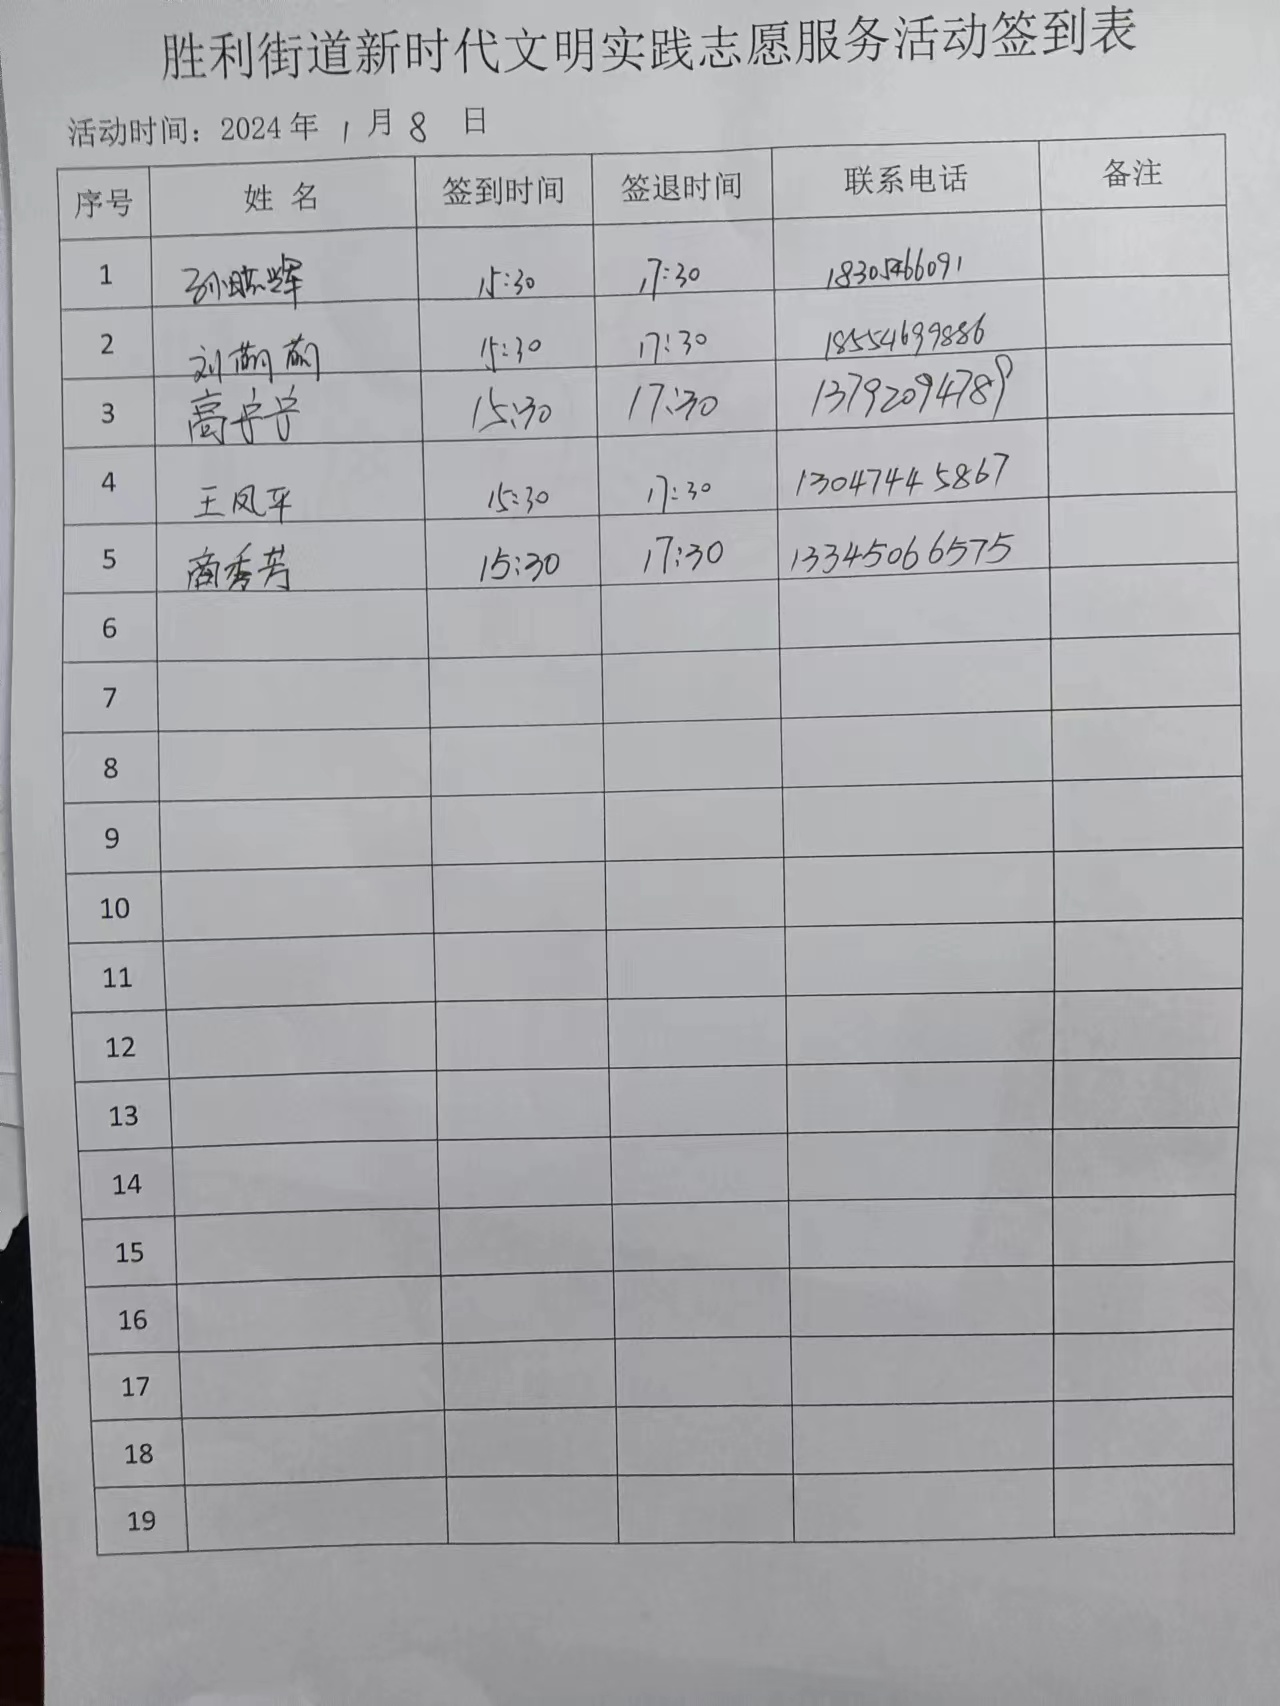 胜利街道新时代文明实践志愿服务活动签到表
活动时间：2024年 1 月 8 日
序号 姓 名 签到时间 签退时间 联系电话 备注
1 孙晓辉 15:30 17:30 18305466091
2 刘萌萌 15:30 17:30 18554699886
3 高宁宁 15:30 17:30 13792094789
4 王凤平 15:30 17:30 13047445867
5 商秀芳 15:30 17:30 13345066575
6
7
8
9
10
11
12
13
14
15
16
17
18
19